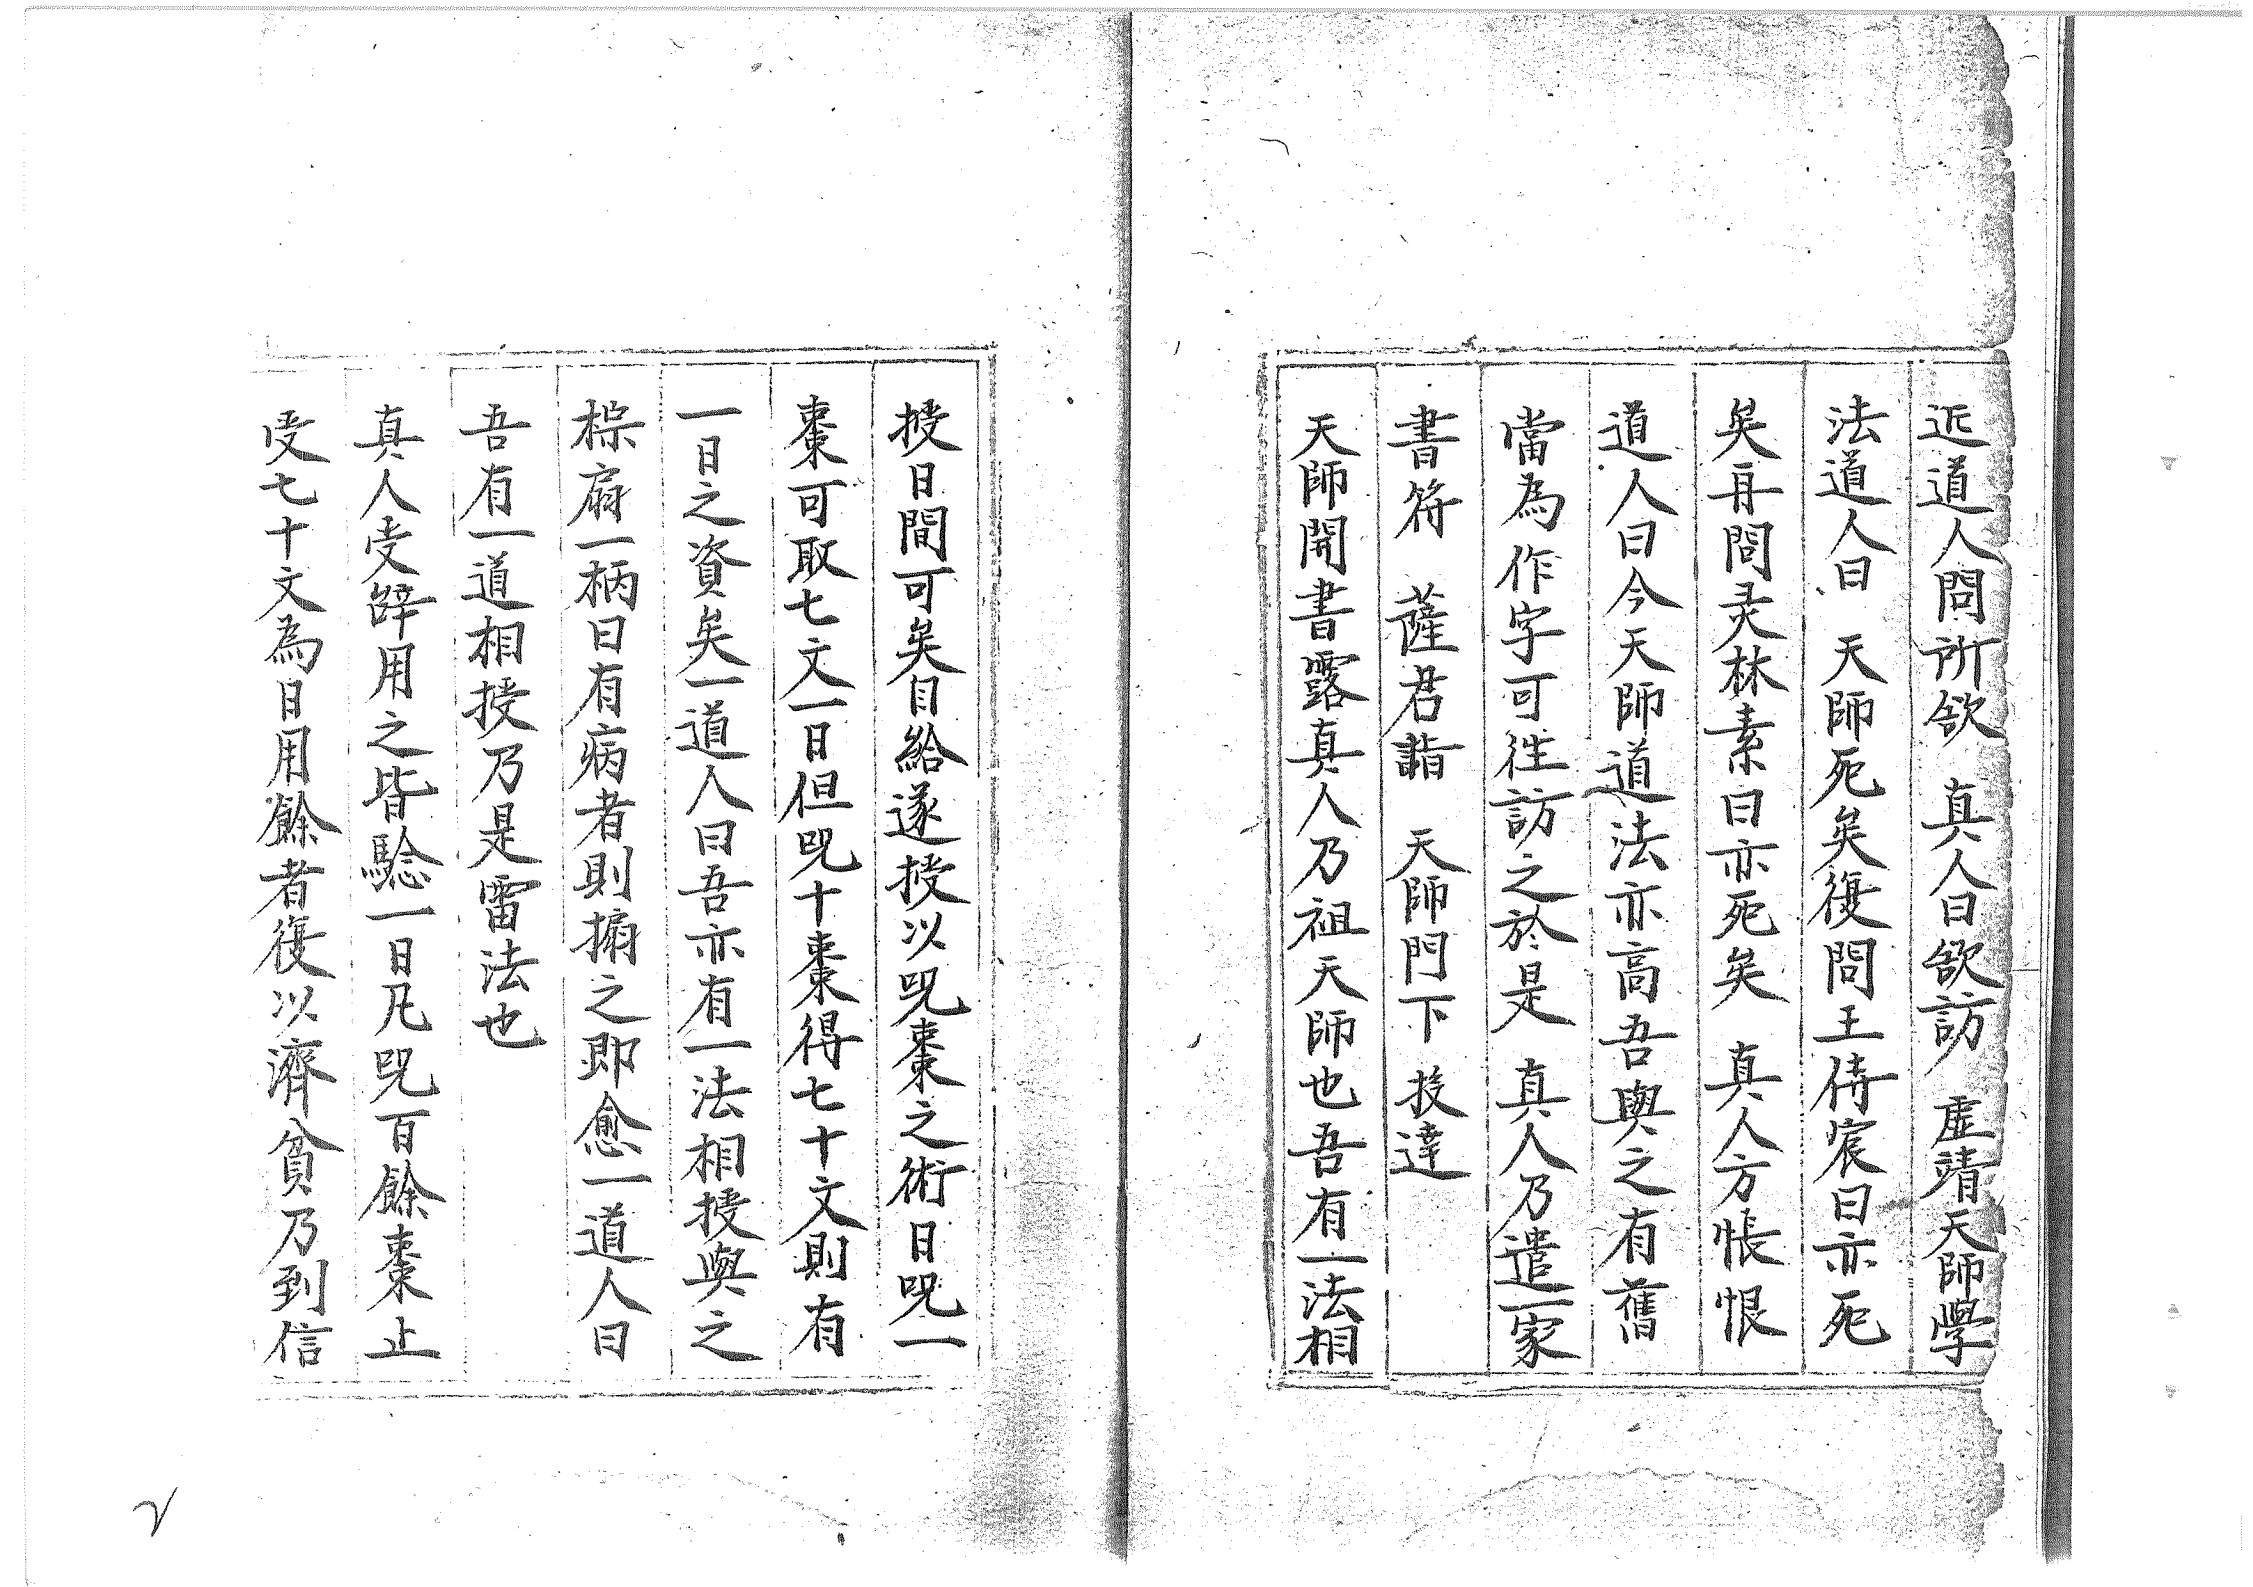 近道人問所欲　真人曰欲訪　虛靖天師學
法道人曰　天師死矣復問王侍宸曰亦死
矣再問灵林素曰亦死矣　真人方悵恨
道人曰今天師道法亦高吾與之有舊
當為作字可往訪之於是　真人乃遣一家
書符　薩君詣　天師門下投達
天師開書露真人乃祖天師也吾有一法相
授日間可矣自給遂授以咒棗之術日咒一
棗可取七文一日但咒十棗得七十文則有
一日之資矣一道人曰吾亦有一法相授與之
棕扇一柄曰有病者則搧之即愈一道人曰
吾有一道相授乃是雷法也
真人受辞用之皆驗一日凡咒百餘棗止
受七十文為日用餘者復以濟貧乃到信